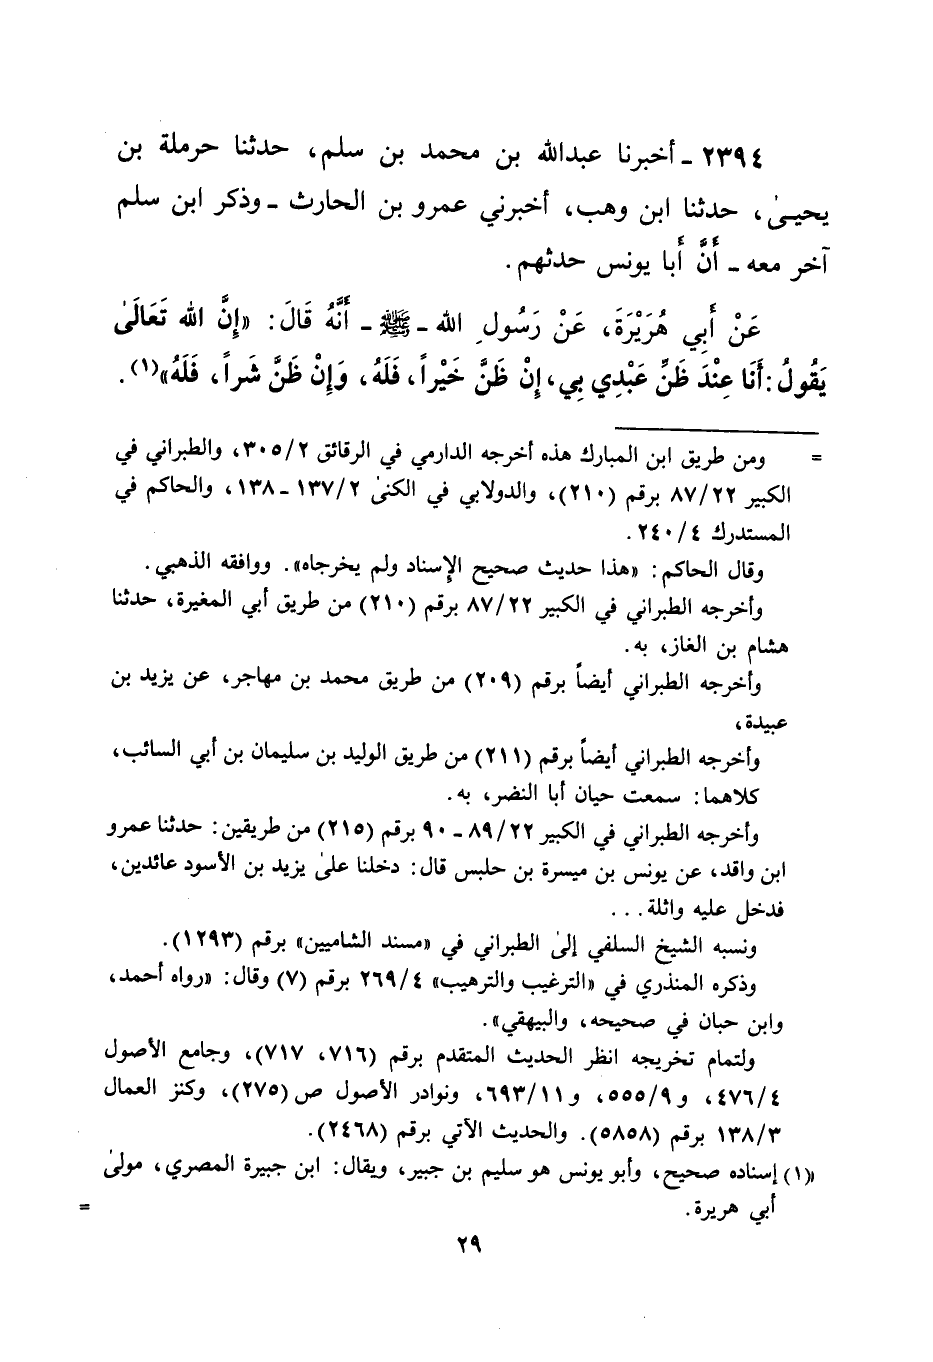 ٢٣٩٤ ـ أخبرنا عبدالله بن محمد بن سلم، حدثنا حرملة بن
يحيىٰ، حدثنا ابن وهب، أخبرني عمرو بن الحارث ـ وذكر ابن سلم
آخر معه ـ أَنَّ أَبا يونس حدثهم.
عَنْ أَبِي هُرَيْرَةَ، عَنْ رَسُولِ الله ـ ﷺ ـ أَنَّهُ قَالَ: «إِنَّ الله تَعَالَىٰ
يَقُولُ: أَنَا عِنْدَ ظَنِّ عَبْدِي بِي، إِنْ ظَنَّ خَيْراً، فَلَهُ، وَإِنْ ظَنَّ شَراً، فَلَهُ»(١).
= ومن طريق ابن المبارك هذه أخرجه الدارمي في الرقائق ٣٠٥/٢، والطبراني في
الكبير ٨٧/٢٢ برقم (٢١٠)، والدولابي في الكنىٰ ١٣٧/٢ ـ ١٣٨، والحاكم في
المستدرك ٢٤٠/٤.
وقال الحاكم: «هذا حديث صحيح الإسناد ولم يخرجاه». ووافقه الذهبي.
وأخرجه الطبراني في الكبير ٨٧/٢٢ برقم (٢١٠) من طريق أبي المغيرة، حدثنا
هشام بن الغاز، به.
وأخرجه الطبراني أيضاً برقم (٢٠٩) من طريق محمد بن مهاجر، عن يزيد بن
عبيدة،
وأخرجه الطبراني أيضاً برقم (٢١١) من طريق الوليد بن سليمان بن أبي السائب،
كلاهما: سمعت حيان أبا النضر، به.
وأخرجه الطبراني في الكبير ٨٩/٢٢ ـ ٩٠ برقم (٢١٥) من طريقين: حدثنا عمرو
ابن واقد، عن يونس بن ميسرة بن حلبس قال: دخلنا علىٰ يزيد بن الأسود عائدين،
فدخل عليه واثلة...
ونسبه الشيخ السلفي إلىٰ الطبراني في «مسند الشاميين» برقم (١٢٩٣).
وذكره المنذري في «الترغيب والترهيب» ٢٦٩/٤ برقم (٧) وقال: «رواه أحمد،
وابن حبان في صحيحه، والبيهقي».
ولتمام تخريجه انظر الحديث المتقدم برقم (٧١٦، ٧١٧)، وجامع الأصول
٤٧٦/٤، و ٥٥٥/٩، و ٦٩٣/١١، ونوادر الأصول ص (٢٧٥)، وكنز العمال
١٣٨/٣ برقم (٥٨٥٨). والحديث الآتي برقم (٢٤٦٨).
(١) إسناده صحيح، وأبو يونس هو سليم بن جبير، ويقال: ابن جبيرة المصري، مولىٰ
أبي هريرة. =
٢٩